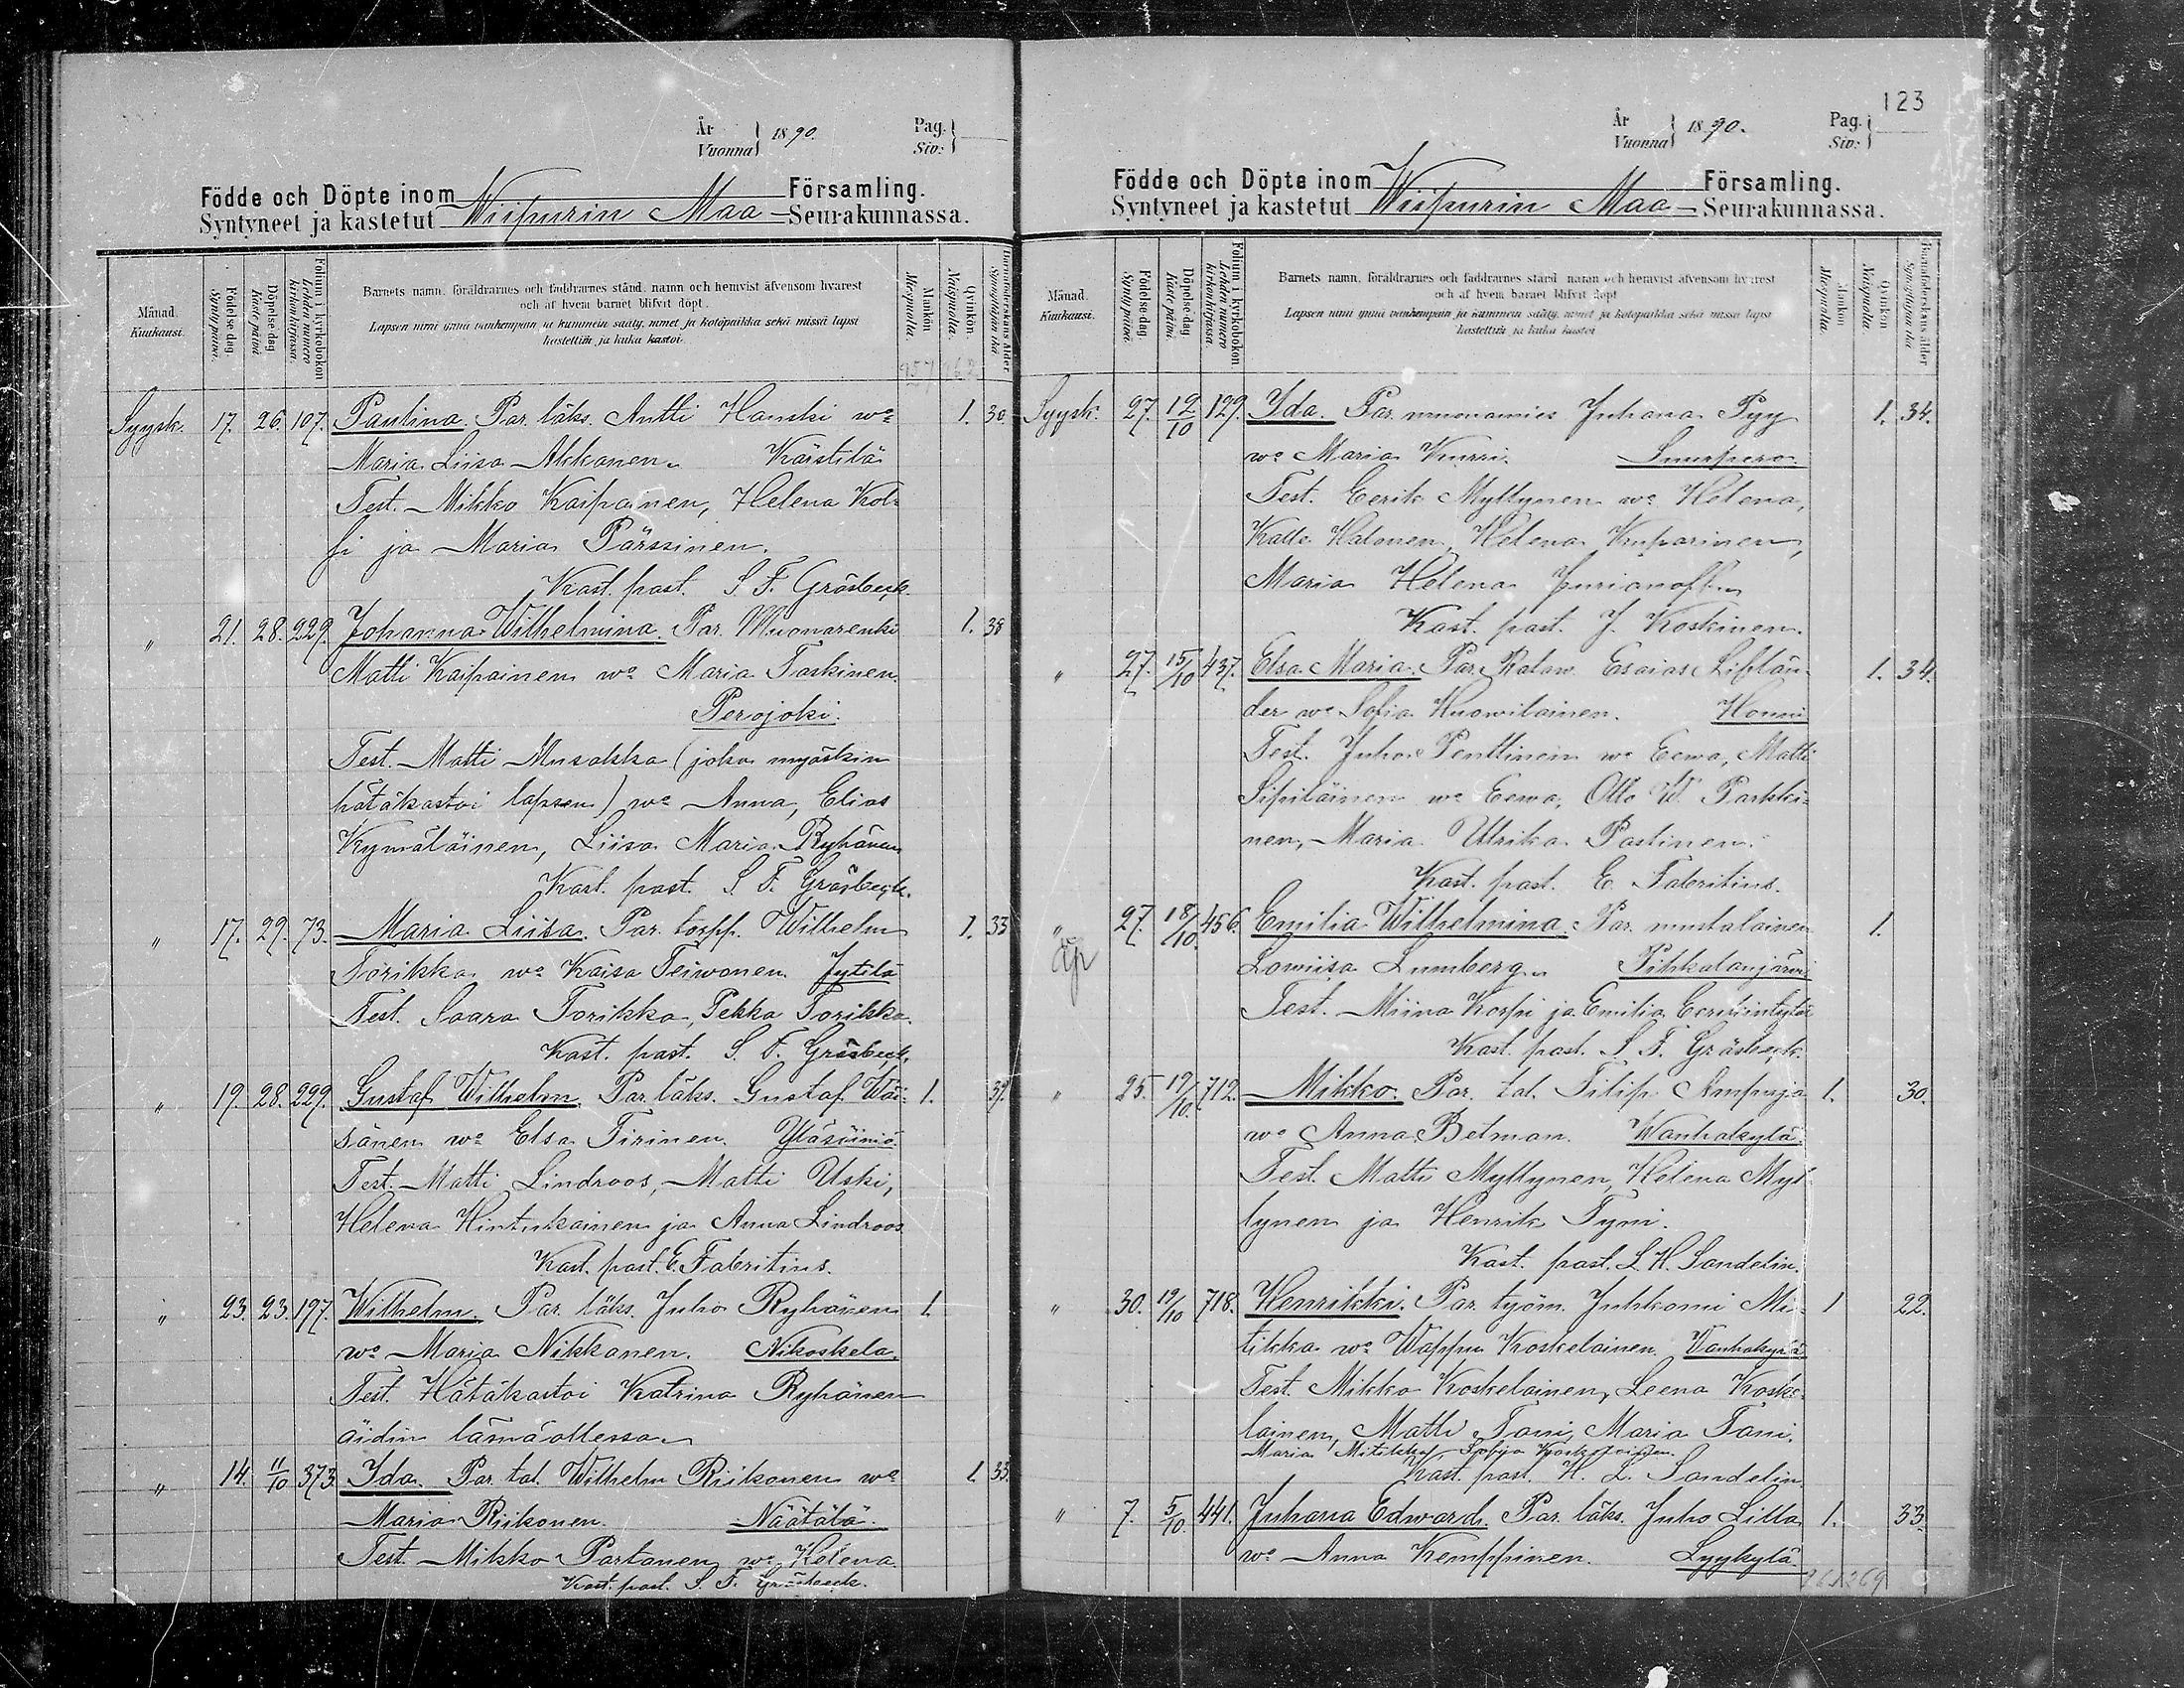 År
Vuonna } 1890.
Pag.
Siv: }
Födde och Döpte inom
Syntyneet ja kastetut Wiipurin Maa- Församling.
Seurakunnassa.
Månad.
Kuukausi.
Födelse dag
Syntypäivä.
Döpelse dag
Kastepäivä.
Folium i kyrkoboken
Lehden numero
kirkonkirjassa.
Barnets namn, föräldrarnes och faddrarnes stånd, namn och hemvist äfvensom hvarest
och af hvem barnet blifvit döpt.
Lapsen nimi ynnä vanhempain ja kummein sääty, nimet ja kotopaikka sekä missä lapsi
kastettiin ja kuka kastoi.
Mankön
Miespuolia.
Qvinkön.
Naispuolia.
Barnaföderskans ålder
Synnyttäjän ikä
Syysk. 17. 26. 107. Paulina. Par. läks. Antti Hanski wo 1. 30
Maria Liisa Akkanen. Kärstilä
Test. Mikko Kaipainen, Helena Kol-
hi ja Maria Pärssinen.
Kast. past. S. F. Gräsbeck.
" 21. 28. 229. Johanna Wilhelmina. Par. Muonarenki 1. 38
Matti Kaipainen wo Maria Taskinen.
Perojoki.
Test. Matti Musakka (joka myöskin
hätäkastoi lapsen) wo Anna, Elias
Kymäläinen, Liisa Maria Ryhänen
Kast. past. S. F. Gräsbeck.
" 17. 29. 73. Maria Liisa. Par. torpp. Wilhelm 1. 33
Torikka wo Kaisa Teiwonen. Jytilä
Test. Saara Torikka, Pekka Torikka.
Kast. past. S. F. Gräsbeck.
" 19. 28. 299. Gustaf Wilhelm. Par. läks. Gustaf Wäi- 1. 39.
sänen wo Elsa Tirinen. Yläsäiniö.
Test. Matti Lindroos, Matti Uski,
Helena Hintukainen ja Anna Lindroos
Kast. past. E. Fabritius.
" 23. 23. 197. Wilhelm. Par. läks. Juho Ryhänen 1.
wo Maria Nikkanen. Nikoskela.
Test. Hätäkastoi Katrina Ryhänen
äidin läsnäollessa.
" 14. 11/10 373. Ida. Par. tal. Wilhelm Riikonen wo 1. 33.
Maria Riikonen. Näätälä.
Test. Mikko Partanen wo Helena
Kast. past. S. F. Gräsbeck.
123
År
Vuonna } 1890.
Pag.
Siv: }
Födde och Döpte inom
Syntyneet ja kastetut Wiipurin Maa- Församling.
Seurakunnassa.
Månad.
Kuukausi.
Födelse dag
Syntypäivä.
Döpelse dag
Kastepäivä.
Folium i kyrkoboken
Lehden numero
kirkonkirjassa.
Barnets namn, föräldrarnes och faddrarnes stånd, namn och hemvist äfvensom hvarest
och af hvem barnet blifvit döpt
Lapsen nimi ynnä vanhempain ja kummein sääty, nimet ja kotopaikka sekä missä lapsi
kastettiin ja kuka kastoi
Mankön
Miespuolia.
Qvinkön
Naispuolia.
Barnaföderskans ålder
Synnyttäjän ikä
Syysk. 27. 12/10 129. Ida. Par. muonamies Juhana Pyy 1. 34.
wo Maria Kurri. Suurpero.
Test. Eerik Myllynen wo Helena,
Kalle Halonen, Helena Kuparinen,
Maria Helena
Kast. past. J. Koskinen.
" 27. 15/10 437. Elsa Maria. Par. Rataw. Esaias Liflän- 1. 34.
der wo Sofia Huowilainen. Hounii
Test. Juho Penttinen wo Eewa, Matti
Sipiläinen wo Eewa, Otto W. Parkki-
nen, Maria Ulrika Pastinen.
Kast. past. E. Fabritius.
" 27. 18/10. 456. Emilia Wilhelmina. Par. mustalainen 1.
äp
Lowiisa Lumberg. Pihkalanjärwi
Test. Miina Korpi ja Emilia
Kast. past. S. F. Gräsbeck.
" 25. 19/10. 712. Mikko. Par. tal. Filip Ampuja 1. 30.
wo Anna Betman. Wanhakylä.
Test. Matti Myllynen, Helena Myl-
lynen ja Henrik Tyni.
Kast. past. L. H. Sandelin.
" 30. 19/10 718. Henrikki. Par. työm. Juhkomi Mi- 1 22.
tikka wo Wappu Koskelainen. Wanhakylä
Test. Mikko Koskelainen, Leena Koske-
lainen, Matti Tani, Maria Tani.
Maria Mitikka, Sohja Koskelainen.
Kast. past. H. L. Sandelin
" 7. 5/10. 441. Juhana Edward. Par. läks. Juho Lilla 1. 33.
wo Anna Kemppinen. Lyykylä.